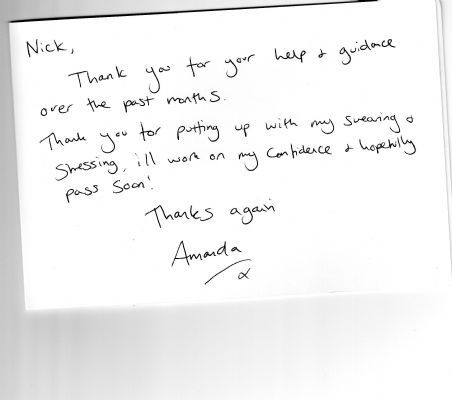 Nick,
Thank you for your help & guidance
over the past months.
Thank you for putting up with my swearing &
stressing, i'll work on my confidence & hopefully
pass soon!
Thanks again
Amanda
x